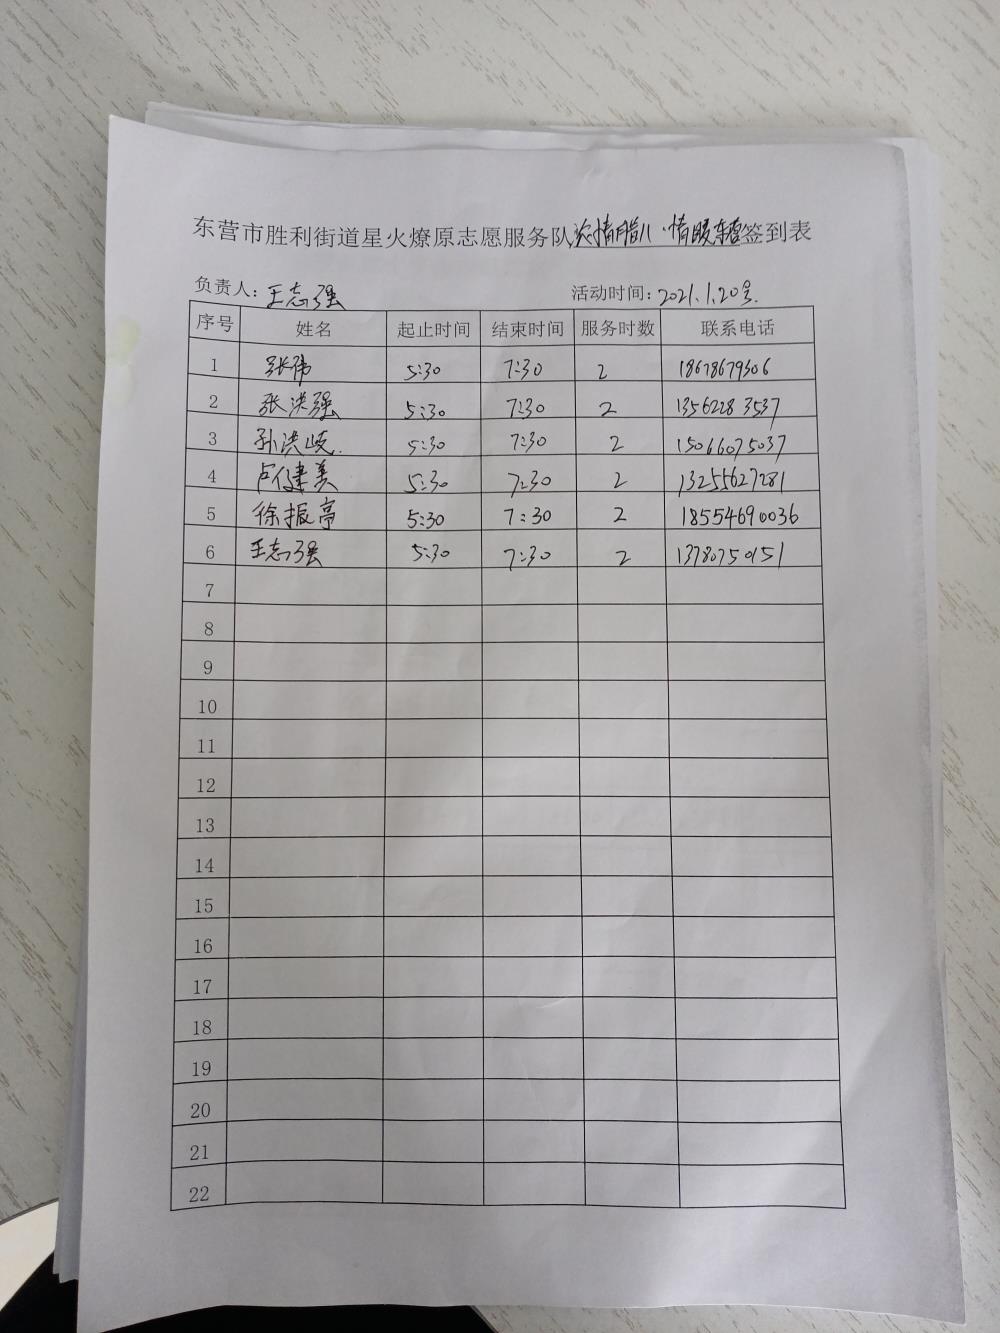 东营市胜利街道星火燎原志愿服务队浓情腊八·情暖东营签到表
负责人：王志强 活动时间：2021.1.20号.
序号 姓名 起止时间 结束时间 服务时数 联系电话
1 张伟 5:30 7:30 2 18678679306
2 张洪强 5:30 7:30 2 13562283537
3 孙洪岐. 5:30 7:30 2 15066075037
4 卢健美 5:30 7:30 2 13255627281
5 徐振亭 5:30 7:30 2 18554690036
6 王志强 5:30 7:30 2 13780750151
7
8
9
10
11
12
13
14
15
16
17
18
19
20
21
22